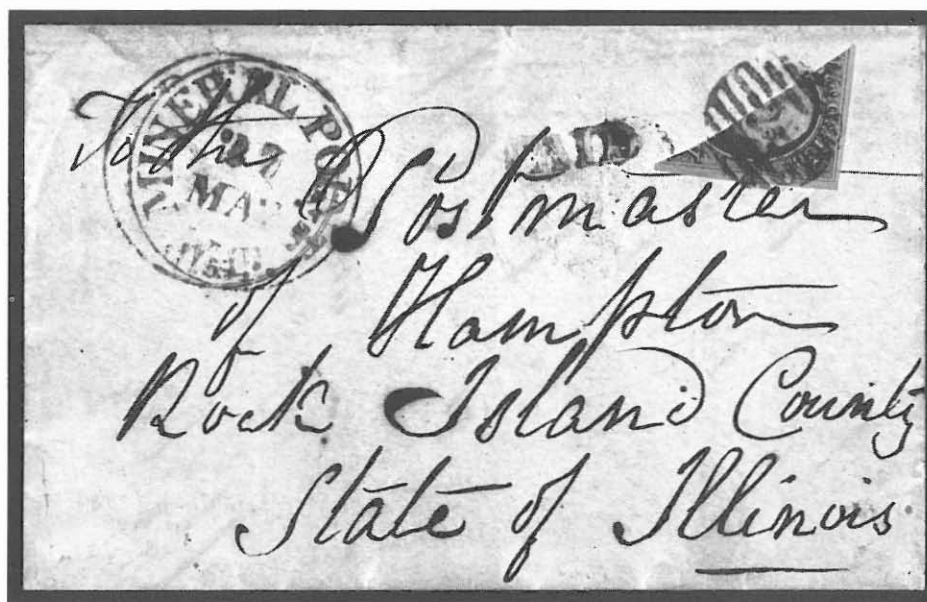 MINERAL POINT
27
MAY
To the Postmaster
of Hampton
Rock Island County
State of Illinois